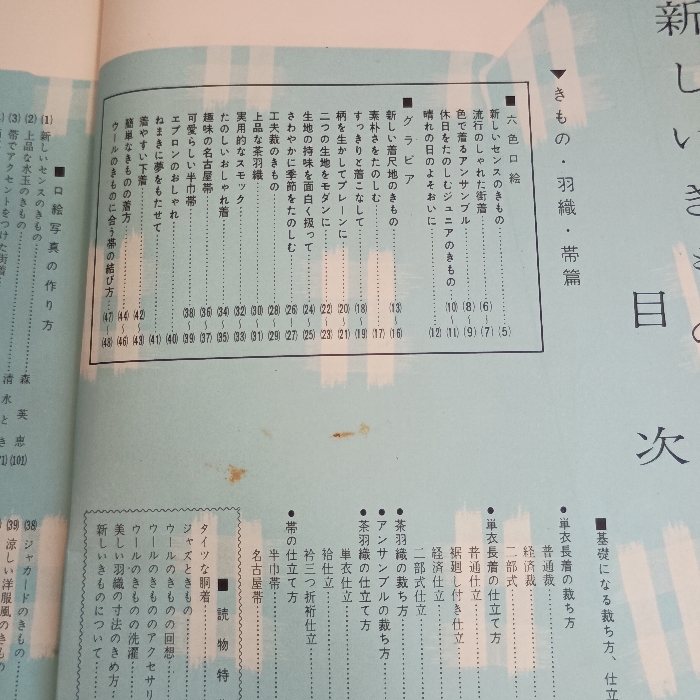 新しいきもの
目次
▼きもの・羽織・帯篇
■六色口絵
新しいセンスのきもの……(5)
流行のしゃれた街着……(6)～(7)
色で着るアンサンブル……(8)～(9)
休日をたのしむジュニアのきもの……(10)～(11)
晴れの日のよそおいに……(12)
■グラビア
新しい着尺地のきもの……(13)～(16)
素朴さをたのしむ……(17)
すっきりと着こなして……(18)～(19)
柄を生かしてプレーンに……(20)～(21)
二つの生地をモダンに……(22)～(23)
生地の持味を面白く扱って……(24)～(25)
さわやかに季節をたのしむ……(26)～(27)
工夫裁のきもの……(28)～(29)
上品な茶羽織……(30)～(31)
実用的なスモック……(32)～(33)
たのしいおしゃれ着……(34)～(35)
趣味の名古屋帯……(36)～(37)
可愛らしい半巾帯……(38)～(39)
エプロンのおしゃれ……(40)
ねまきに夢をもたせて……(41)
着やすい下着……(42)～(43)
簡単なきものの着方……(44)～(46)
ウールのきものに合う帯の結び方……(47)～(48)
■口絵写真の作り方
(1) 新しいセンスのきもの
(2) 上品な水玉のきもの……森英恵(101)
(3) 帯でアクセントをつけた街着……清水とき
■基礎になる裁ち方、仕立
●単衣長着の裁ち方
普通裁
経済裁
二部式
●単衣長着の仕立て方
普通仕立
裾廻し付き仕立
経済仕立
二部式仕立
●茶羽織の裁ち方
●アンサンブルの裁ち方
●茶羽織の仕立て方
単衣仕立
袷仕立
衿三つ折絎仕立
●帯の仕立て方
半巾帯
名古屋帯
■読物特
タイツな胴着
ジャズときもの
ウールのきものの回想
ウールのきもののアクセサリ
ウールのきものの洗濯
美しい羽織の寸法のきめ方
新しいきものについて
(38) ジャカードのきもの
(39) 涼しい洋服風のきもの